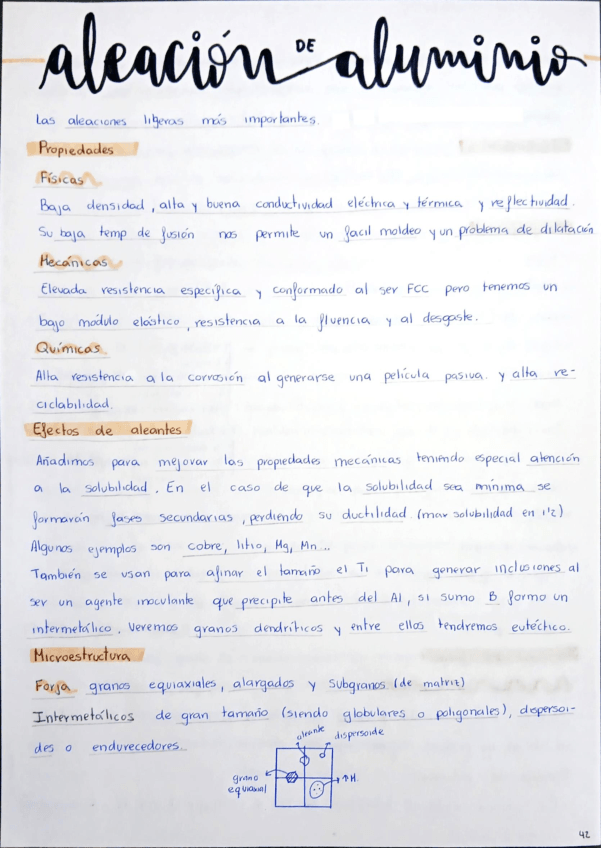 aleación DE aluminio
Las aleaciones ligeras más importantes.
Propiedades
Físicas
Baja densidad, alta y buena conductividad eléctrica y térmica y reflectividad.
Su baja temp de fusión nos permite un facil moldeo y un problema de dilatación
Mecánicas
Elevada resistencia específica y conformado al ser FCC pero tenemos un
bajo módulo elástico, resistencia a la fluencia y al desgaste.
Químicas
Alta resistencia a la corrosión al generarse una película pasiva. y alta re-
ciclabilidad.
Efectos de aleantes
Añadimos para mejorar las propiedades mecánicas teniendo especial atención
a la solubilidad. En el caso de que la solubilidad sea mínima se
formarán fases secundarias, perdiendo su ductilidad. (max solubilidad en 1'2)
Algunos ejemplos son cobre, litio, Mg, Mn...
También se usan para afinar el tamaño el Ti para generar inclusiones al
ser un agente inoculante que precipite antes del Al, si sumo B formo un
intermetálico. Veremos granos dendríticos y entre ellos tendremos eutéctico.
Microestructura
Forja granos equiaxiales, alargados y subgranos (de matriz)
Intermetálicos de gran tamaño (siendo globulares o poligonales), dispersoi-
des o endurecedores.
aleante dispersoide
grano
equiaxial
↑H
42